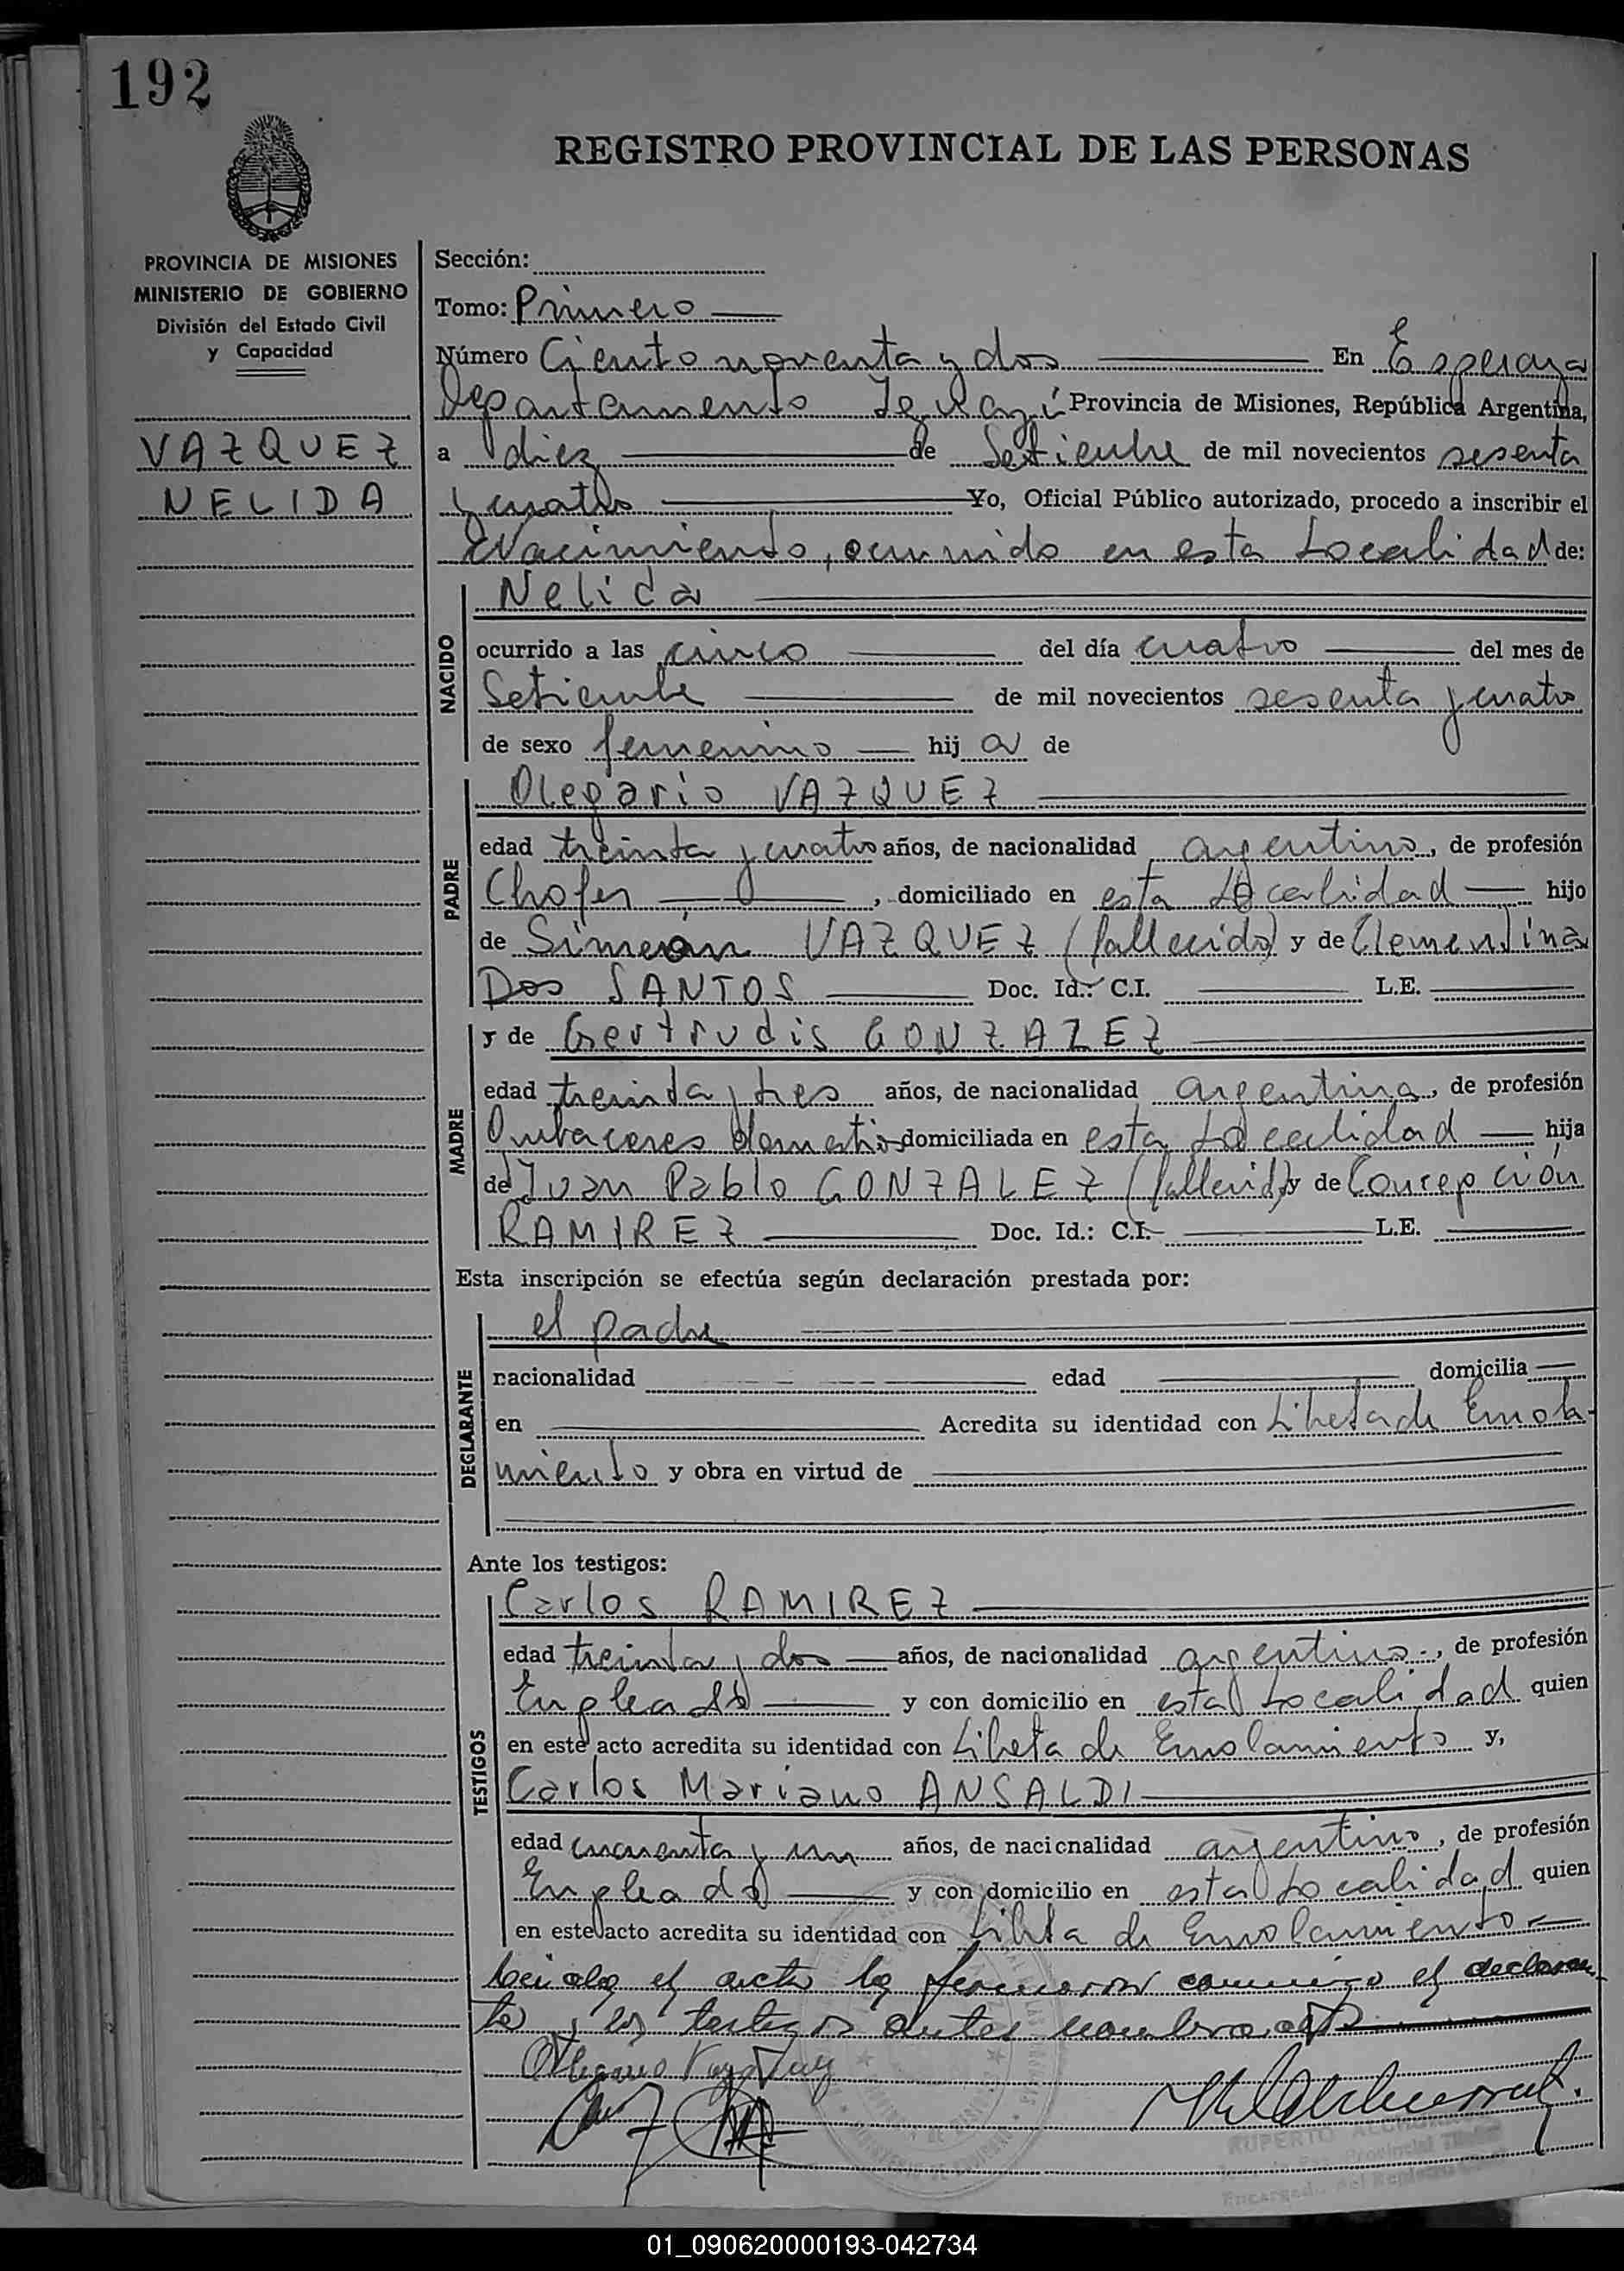 192
REGISTRO PROVINCIAL DE LAS PERSONAS
PROVINCIA DE MISIONES
MINISTERIO DE GOBIERNO
División del Estado Civil
y Capacidad
VAZQUEZ
NELIDA
Sección:
Tomo: Primero
Número Ciento noventa y dos En Esperanza
Departamento Iguazú Provincia de Misiones, República Argentina,
a diez de Setiembre de mil novecientos sesenta
y cuatro Yo, Oficial Público autorizado, procedo a inscribir el
Nacimiento, ocurrido en esta Localidad de:
NACIDO
Nelida
ocurrido a las cinco del día cuatro del mes de
Setiembre de mil novecientos sesenta y cuatro
de sexo femenino hij a de
PADRE
Olegario VAZQUEZ
edad treinta y cuatro años, de nacionalidad argentino, de profesión
Chofer, domiciliado en esta Localidad hijo
de Simeon VAZQUEZ (fallecido) y de Clementina
Dos SANTOS Doc. Id.: C.I. L.E.
MADRE
y de Gertrudis GONZALEZ
edad treinta y tres años, de nacionalidad argentina, de profesión
Quehaceres domestic domiciliada en esta Localidad hija
de Juan Pablo GONZALEZ (fallecido) y de Concepción
RAMIREZ Doc. Id.: C.I. L.E.
Esta inscripción se efectúa según declaración prestada por:
DECLARANTE
el padre
nacionalidad edad domicilia
en Acredita su identidad con Libreta de Enrola-
miento y obra en virtud de
Ante los testigos:
TESTIGOS
Carlos RAMIREZ
edad treinta y dos años, de nacionalidad argentino, de profesión
Empleado y con domicilio en esta Localidad quien
en este acto acredita su identidad con Libreta de Enrolamiento y,
Carlos Mariano ANSALDI
edad cincuenta y un años, de nacionalidad argentino, de profesión
Empleado y con domicilio en esta Localidad quien
en este acto acredita su identidad con Libreta de Enrolamiento
Leida el acta la firmaron conmigo el declaran
te y los testigos antes nombrados
RUPERTO
01_090620000193-042734